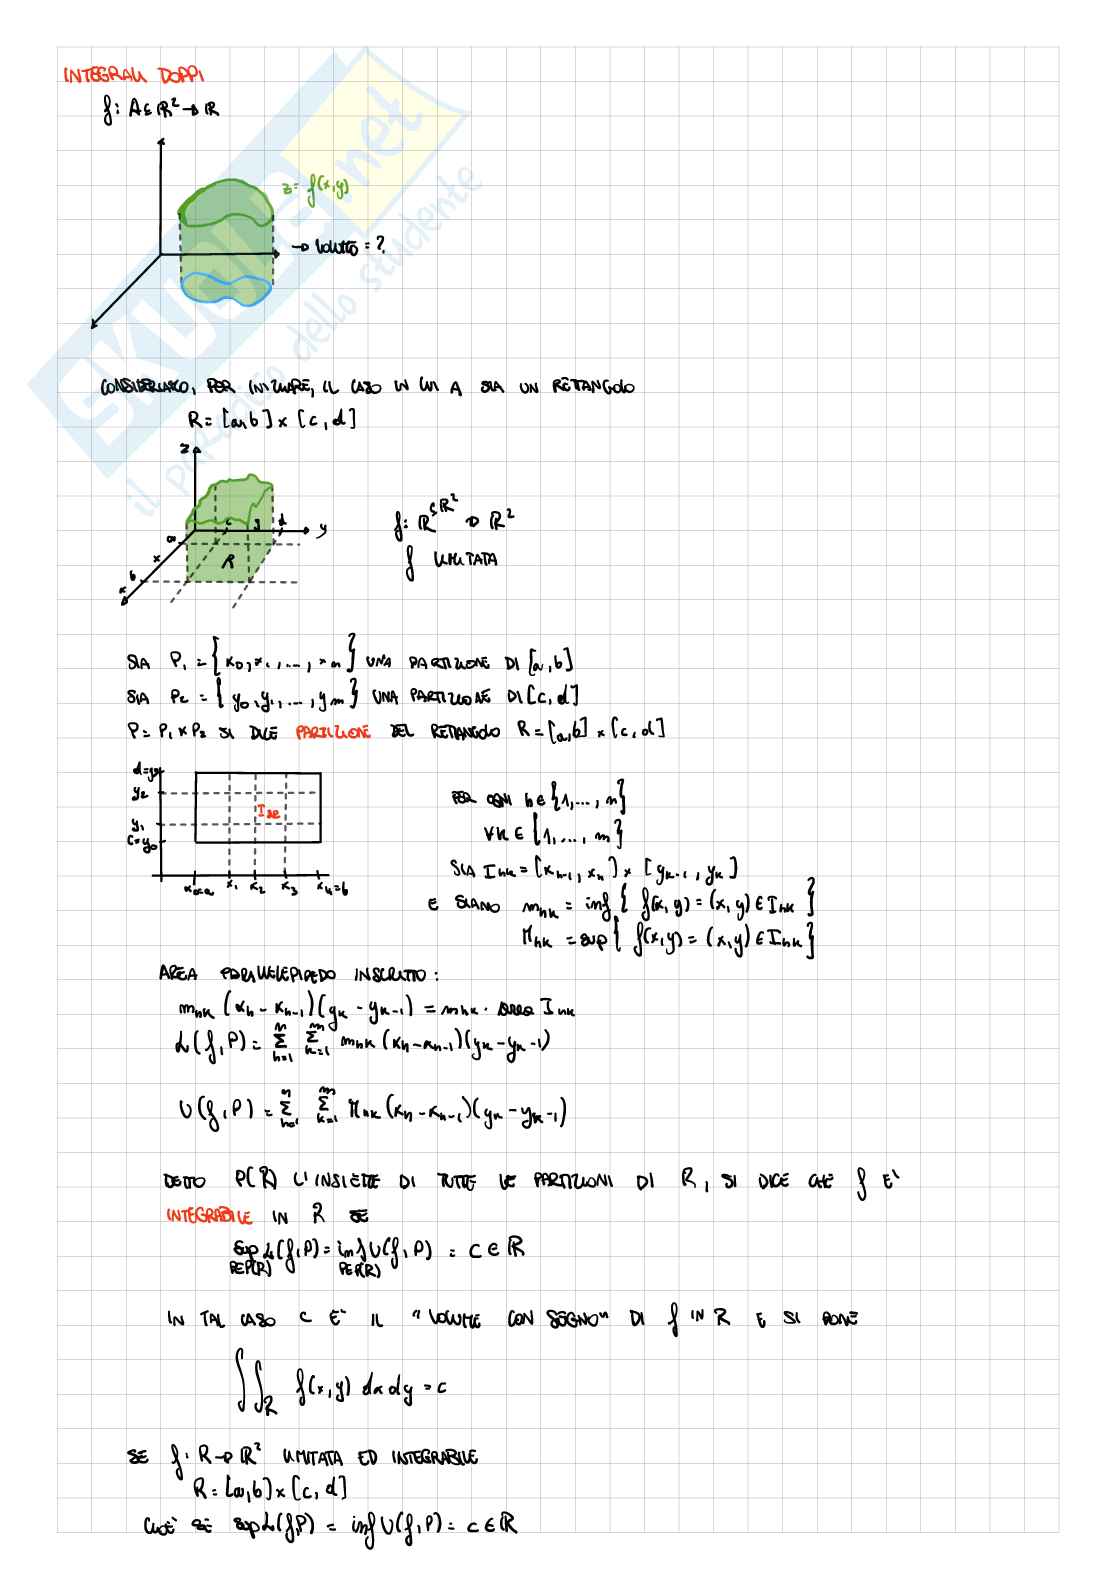 INTEGRALI DOPPI
f: A ⊆ ℝ² → ℝ
z = f(x,y)
→ VOLUME = ?
CONSIDERIAMO, PER INIZIARE, IL CASO IN CUI A SIA UN RETTANGOLO
R = [a,b] × [c,d]
z
a c d y
x
b R
x
f: R ⊆ ℝ² → ℝ²
f LIMITATA
SIA P₁ = {x₀, x₁, ..., xₙ} UNA PARTIZIONE DI [a,b]
SIA P₂ = {y₀, y₁, ..., yₘ} UNA PARTIZIONE DI [c,d]
P = P₁ × P₂ SI DICE PARTIZIONE DEL RETTANGOLO R = [a,b] × [c,d]
d=y₃
y₂
y₁
c=y₀
I₃₂
x₀=a x₁ x₂ x₃ x₄=b
PER OGNI h ∈ {1, ..., n}
∀k ∈ {1, ..., m}
SIA Iₕₖ = [xₕ₋₁, xₕ] × [yₖ₋₁, yₖ]
E SIANO mₕₖ = inf { f(x,y) = (x,y) ∈ Iₕₖ }
Mₕₖ = sup { f(x,y) = (x,y) ∈ Iₕₖ }
AREA PARALLELEPIPEDO INSCRITTO:
mₕₖ (xₕ - xₕ₋₁)(yₖ - yₖ₋₁) = mₕₖ · area Iₕₖ
L(f,P) = Σₕ₌₁ⁿ Σₖ₌₁ᵐ mₕₖ (xₕ - xₕ₋₁)(yₖ - yₖ₋₁)
U(f,P) = Σₕ₌₁ⁿ Σₖ₌₁ᵐ Mₕₖ (xₕ - xₕ₋₁)(yₖ - yₖ₋₁)
DETTO P(R) L'INSIEME DI TUTTE LE PARTIZIONI DI R, SI DICE CHE f E'
INTEGRABILE IN R SE
sup L(f,P) = inf U(f,P) = c ∈ ℝ
P∈P(R) P∈P(R)
IN TAL CASO C E' IL "VOLUME CON SEGNO" DI f IN R E SI PONE
∬_R f(x,y) dx dy = c
SE f: R → ℝ² LIMITATA ED INTEGRABILE
R = [a,b] × [c,d]
CIOE' SE sup L(f,P) = inf U(f,P) = c ∈ ℝ
SKUOLA.net
il paradiso dello studente